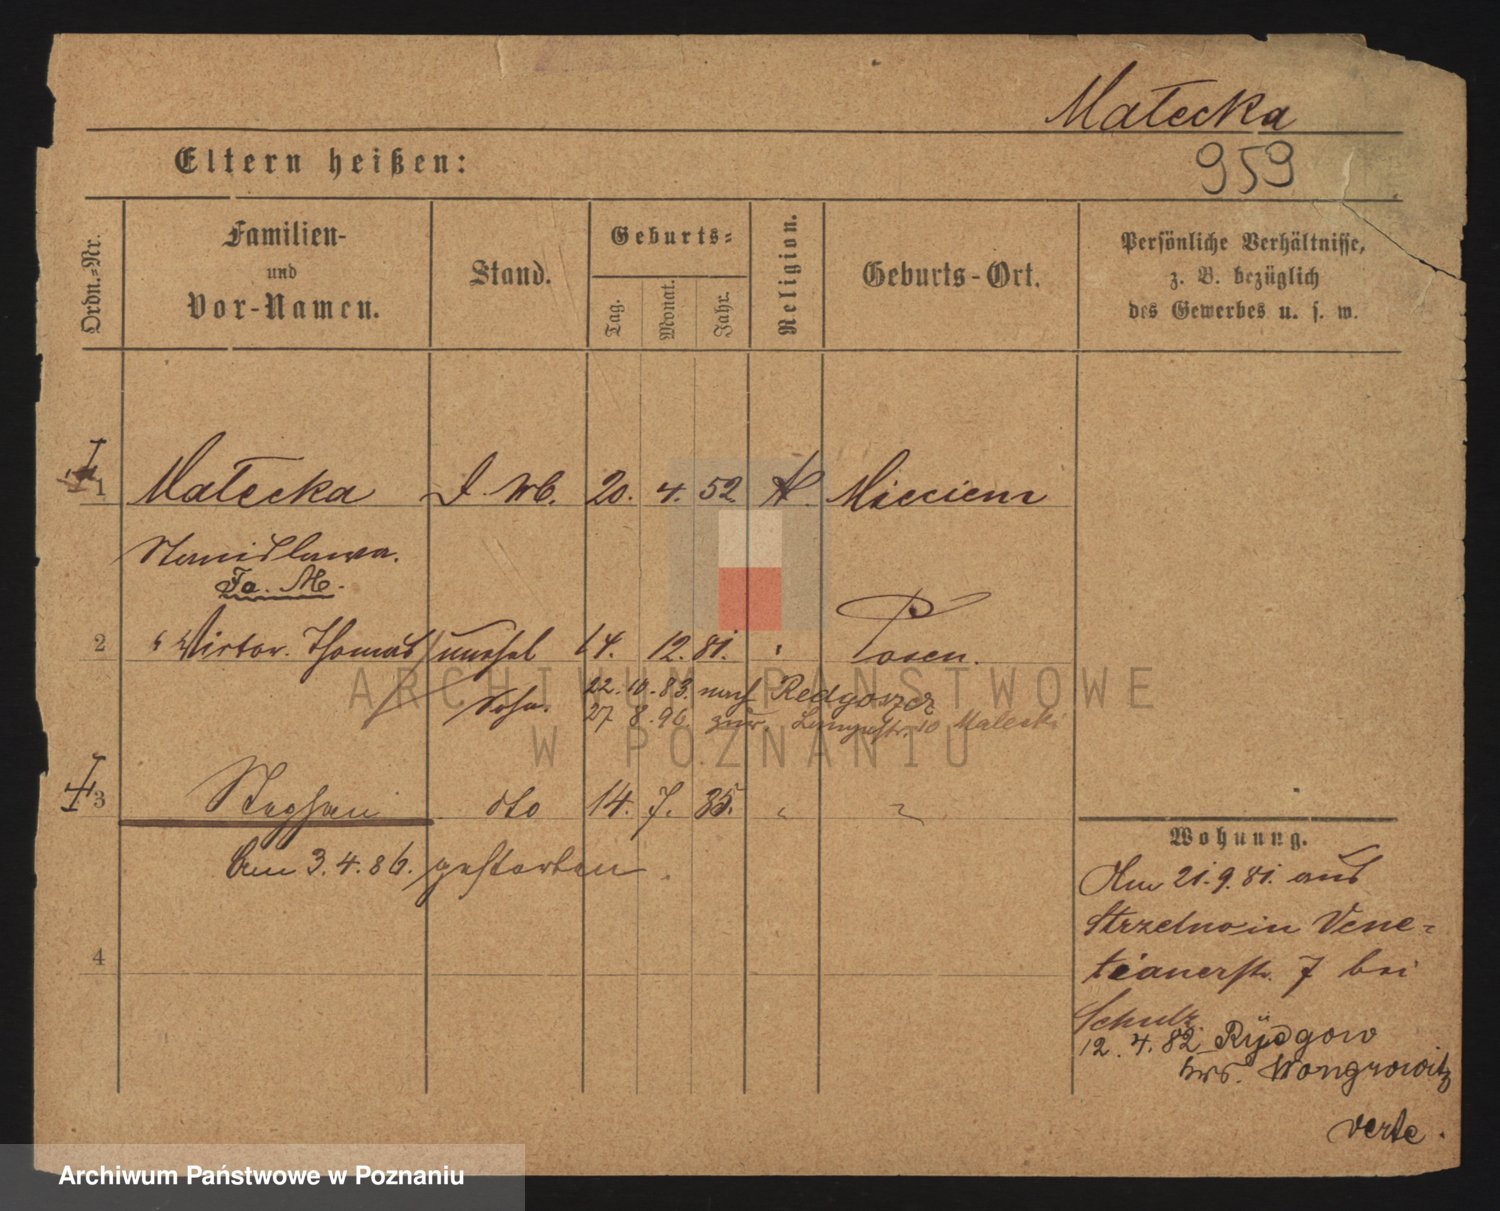 Małecka
959
Eltern heißen:
Ordn.-Nr.
Familien-
und
Vor-Namen.
Stand.
Geburts-
Tag.
Monat.
Jahr.
Religion.
Geburts-Ort.
Persönliche Verhältnisse,
z. B. bezüglich
des Gewerbes u. s. w.
1 Małecka 20. 4. 52 K.
Stanislawa.
Fa. M.
2 " Victor. Thomas unehel 14. 12. 81. " Posen.
Sohn. 22. 10. 83. nach Redgoszcz
27 8. 96 zur. Langestr. 10 Malecki
3 Stephan dto 14. 7. 85. " "
Am 3. 4. 86. gestorben.
4
Wohnung.
Am 21. 9. 81. aus
Strzelno in Vene-
tianerstr. 7 bei
Schulz.
12. 4. 82 Rydgow
Krs. Wongrowitz
verte.
ARCHIWUM PAŃSTWOWE
W POZNANIU
Archiwum Państwowe w Poznaniu